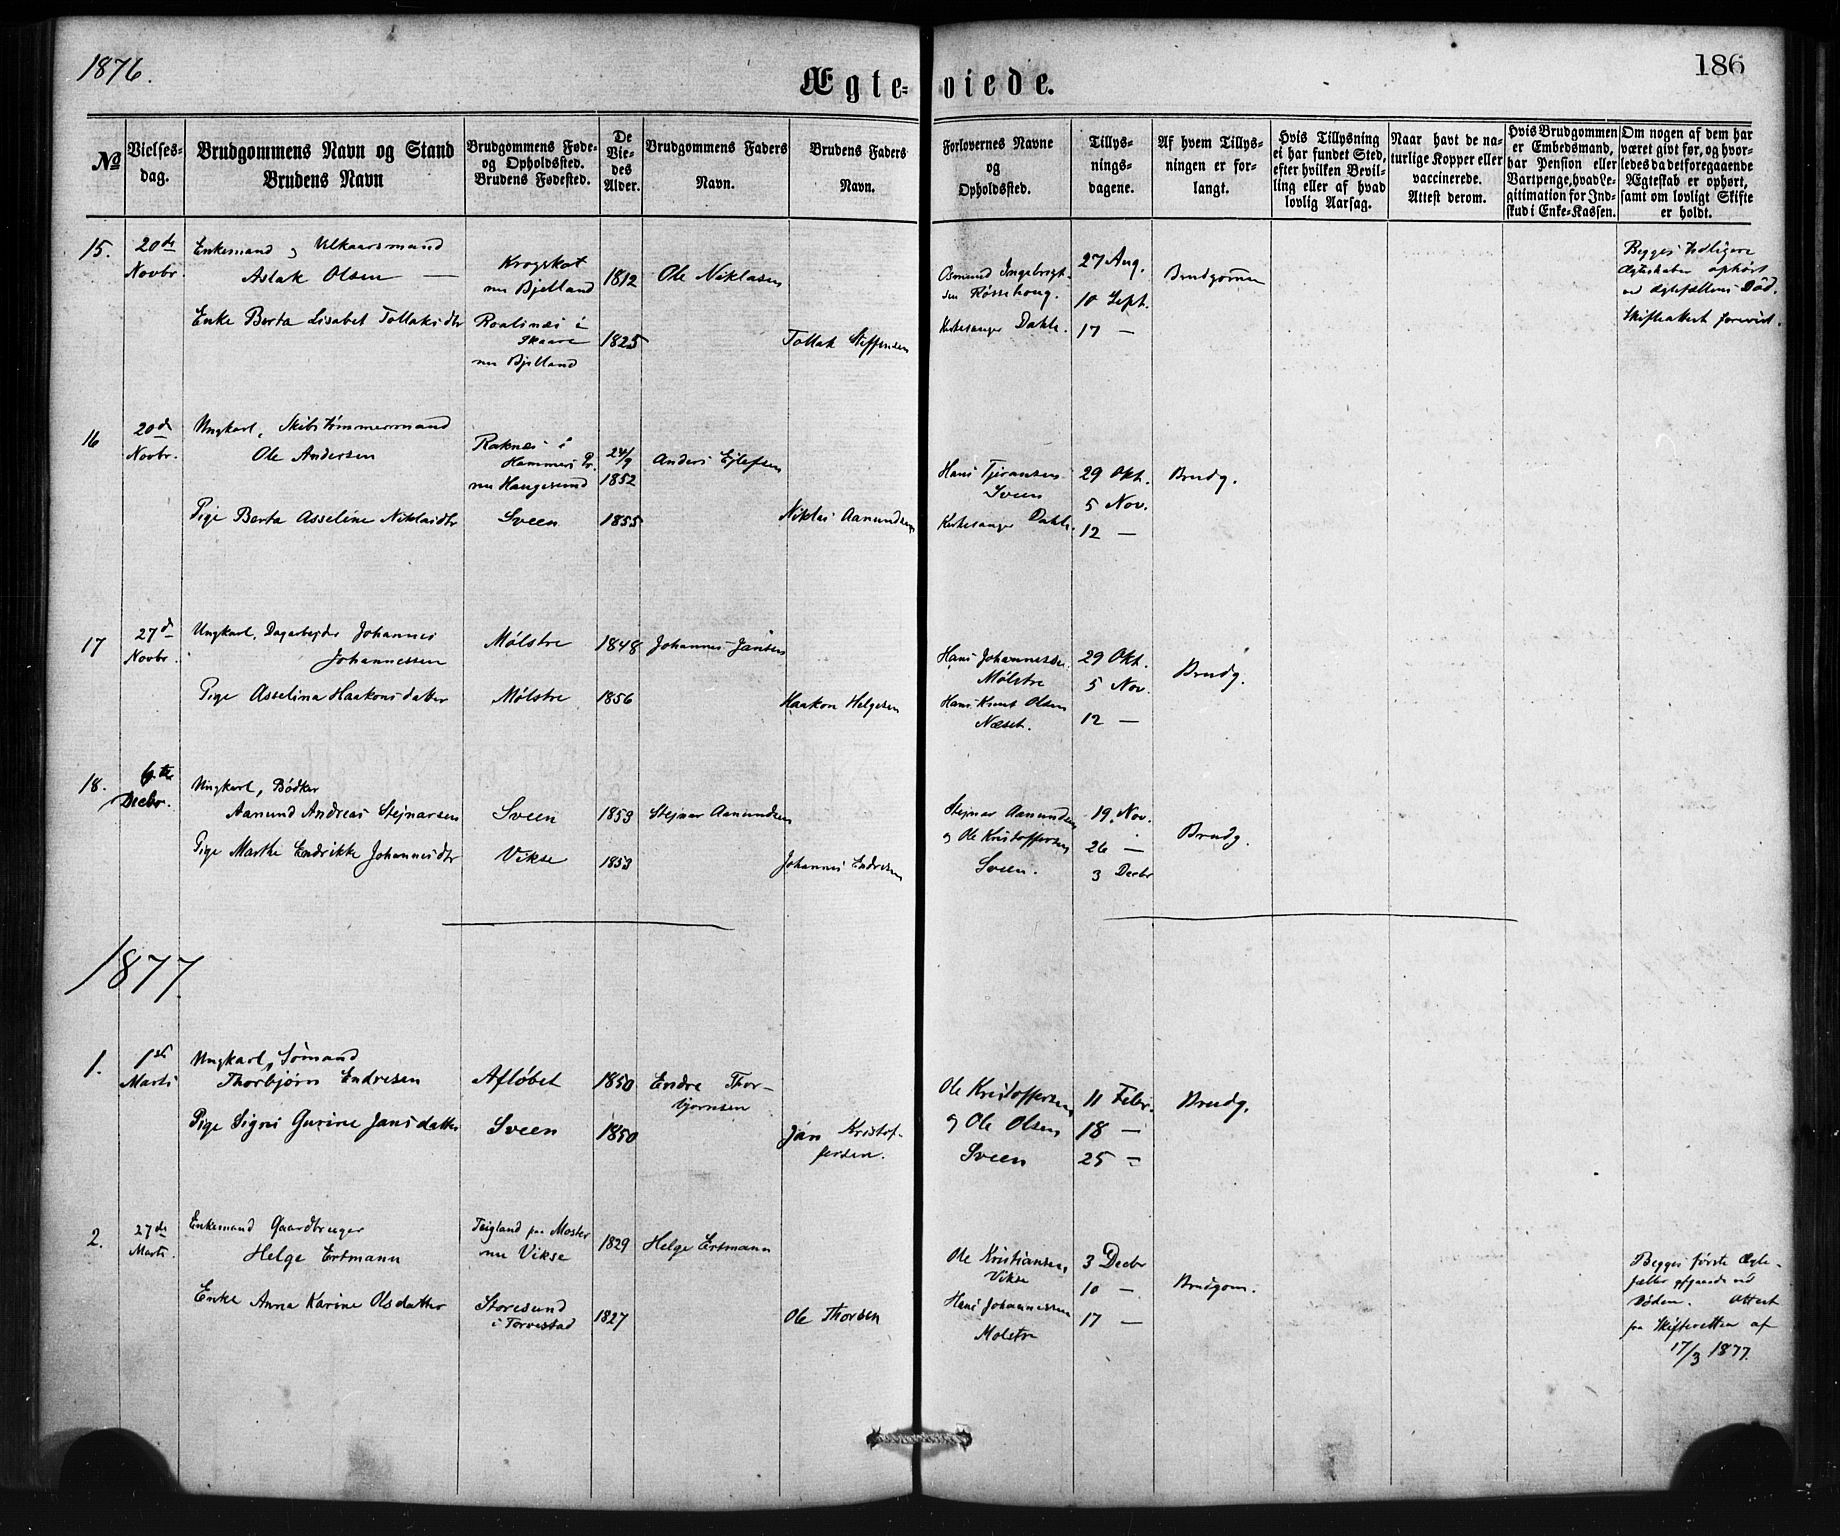 1876.
186
Ægteviede.
No
Vielses-
dag.
Brudgommens Navn og Stand
Brudens Navn
Brudgommens Føde-
og Opholdssted.
Brudens Fødested.
De
Vie-
des
Alder.
Brudgommens Faders
Navn.
Brudens Faders
Navn.
Forlovernes Navne
og
Opholdssted.
Tillys-
nings-
dagene.
Af hvem Tillys-
ningen er for-
langt.
Hvis Tillysning
ei har fundet Sted,
efter hvilken Bevil-
ling eller af hvad
lovlig Aarsag.
Naar havt de na-
turlige Kopper eller
vaccinerede.
Attest derom.
Hvis Brudgommen
er Embedsmand,
har Pension eller
Vartpenge, hvad Le-
gitimation for Ind-
skud i Enke-Kassen.
Om nogen af dem har
været givt før, og hvor-
ledes da det foregaaende
Ægteskab er ophørt,
samt om lovligt Skifte
er holdt.
15.
20de
Novbr.
Enkemand og Vilkaarsmand
Aslak Olsen —
Enke Berta Lisabet Tollaksdtr
Krogskot
nu Bjelland
Roalsnæs i
Skaare
nu Bjelland
1812
1825
Ole Niklasen
Tollak Steffensen
Osmund Ingebrigt-
sen Røssehoug.
Kirkesanger Dahle.
27 Aug.
10 Sept.
17 —
Brudgommen
Begges tidligere
Ægteskaber ophørt
ved Ægtefællens Død.
Skifteattest forevist.
16
20de
Novbr.
Ungkarl, Skibstømmermand
Ole Andersen
Pige Berta Asseline Niklasdtr
Raknæs i
Hammers Pr.
nu Haugesund
Sveen
24/9
1852
1855
Anders Ejlefsen
Niklas Aamundsen
Hans Tjeransen
Sveen
Kirkesanger Dahle.
29 Okt.
5 Nov.
12 —
Brudg.
17
27de
Novbr.
Ungkarl, Dagarbejder Johannes
Johannessen
Pige Asselina Haakonsdatter
Mølstre
Mølstre
1848
1856
Johannes Jansen
Haakon Helgesen
Hans Johannessen
Mølstre
Hans Knut Olsen
Næset.
29 Okt.
5 Nov.
12 —
Brudg.
18.
6te
Decbr.
Ungkarl, Bødker
Aamund Andreas Stejnarsen
Pige Marthe Endrikke Johannesdtr
Sveen
Vikse
1853
1853
Stejnar Aamundsen
Johannes Endresen
Stejnar Aamundsen
og Ole Kristoffersen
Sveen.
19. Nov.
26 —
3 Decbr
Brudg.
1877.
1.
1ste
Marts
Ungkarl, Sømand
Thorbjørn Endresen
Pige Signi Gurine Jansdatter
Afløbet
Sveen
1850
1850
Endre Thor-
bjørnsen
Jan Kristof-
fersen.
Ole Kristoffersen
og Ole Olsen
Sveen
11 Febr.
18 —
25 —
Brudg.
2.
27de
Marts.
Enkemand Gaardbruger
Helge Ertmann
Enke Anna Karine Olsdatter
Teigland paa Moster
nu Vikse
Storesund
i Torvestad
1829
1827
Helge Ertmann
Ole Thorsen
Ole Kristiansen,
Vikse
Hans Johannessen
Mølstre
3 Decbr
10 —
17 —
Brudgom.
Begges første Ægte-
fæller afgaaede ved
Døden. Attest
fra Skifteretten af
17/3 1877.